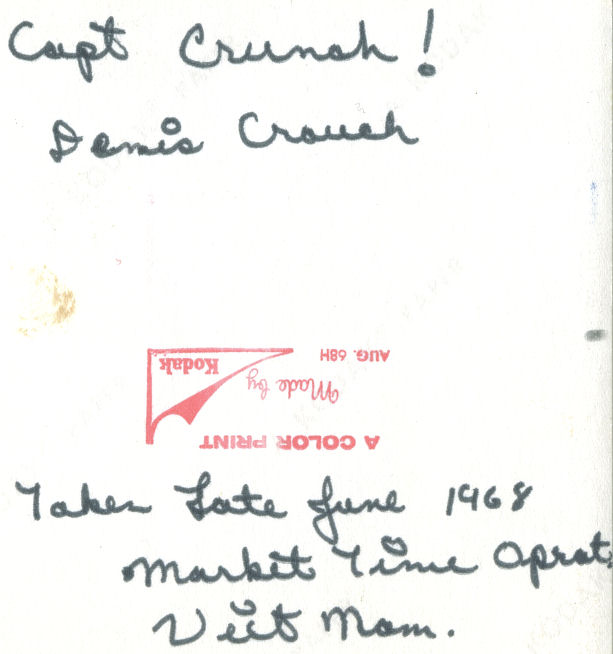 Capt Crunch!
Dennis Crouch
AUG. 68H
Kodak
Made by
A COLOR PRINT
Taken Late June 1968
Market Time Oprat
Viet Nam.